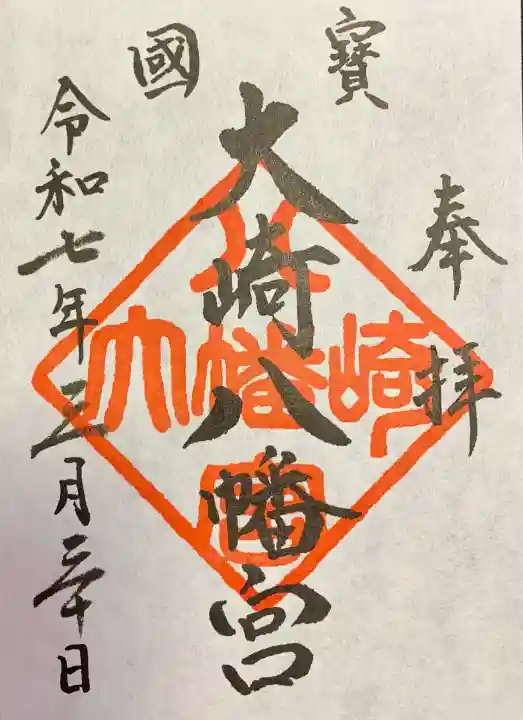 奉拝
國寳
大崎八幡宮
令和七年三月二十日
大崎八幡宮